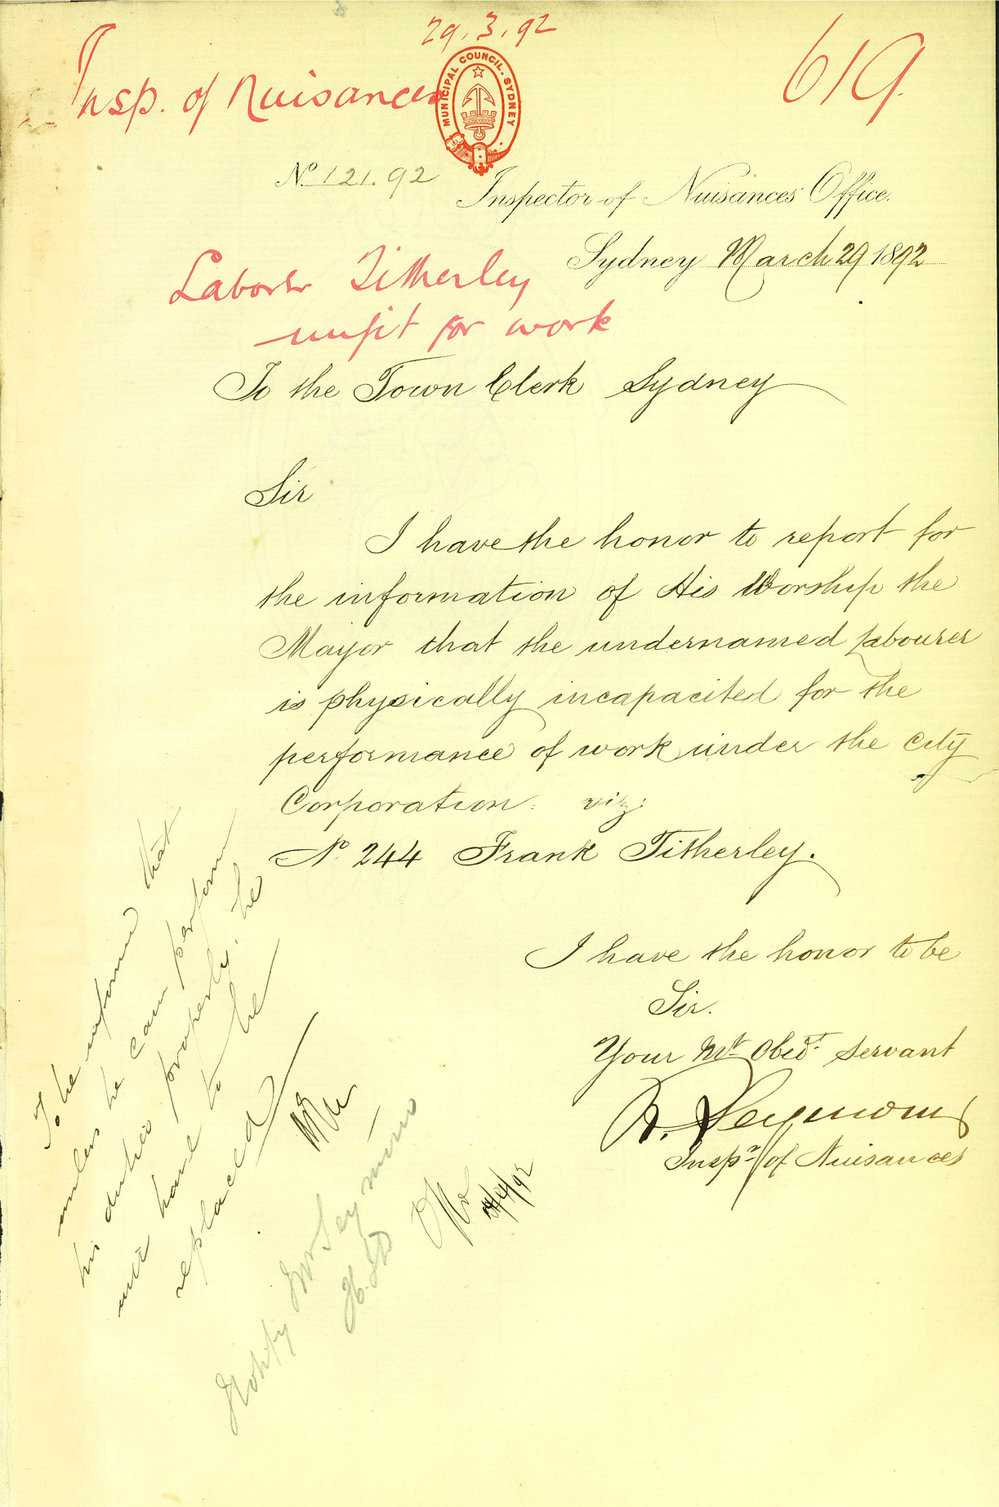 29.3.92
Insp. of Nuisances
619.
MUNICIPAL COUNCIL. SYDNEY
No 121.92
Inspector of Nuisances Office.
Sydney March 29 1892
Laborer Titherley
unfit for work
To the Town Clerk Sydney
Sir
I have the honor to report for
the information of His Worship the
Mayor that the undernamed Labourer
is physically incapacited for the
performance of work under the City
Corporation. viz:
No 244 Frank Titherley.
I have the honor to be
Sir.
Your Mt Obedt Servant
R. Seymour
Inspr of Nuisances
To be informed that
unless he can perform
his duties properly, he
will have to be
replaced
Notify Mr Seymour
/92